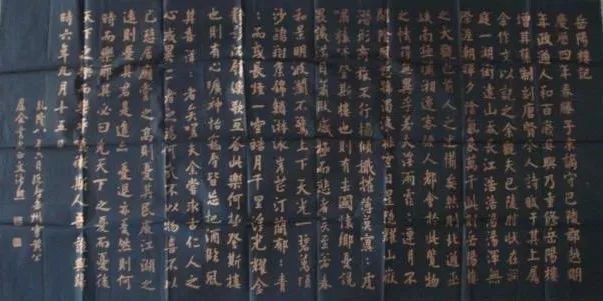 岳陽樓記
慶曆四年春滕子京謫守巴陵郡越明
年政通人和百廢具興乃重修岳陽樓
增其舊制刻唐賢今人詩賦于其上屬
余作文以記之余觀夫巴陵勝狀在洞
庭一湖銜遠山吞長江浩浩湯湯橫無
際涯朝暉夕陰氣象萬千此則岳陽樓
之大觀也前人之述備矣然則北通巫
峽南極瀟湘遷客騷人多會於此覽物
之情得無異乎若夫霪雨霏霏連月不
開陰風怒號濁浪排空日星隱曜山岳
潛形商旅不行檣傾楫摧薄暮冥冥虎
嘯猿啼登斯樓也則有去國懷鄉憂讒
畏譏滿目蕭然感極而悲者矣至若春
和景明波瀾不驚上下天光一碧萬頃
沙鷗翔集錦鱗游泳岸芷汀蘭郁郁青
青而或長煙一空皓月千里浮光耀金
靜影沉璧漁歌互答此樂何極登斯樓
也則有心曠神怡寵辱皆忘把酒臨風
其喜洋洋者矣嗟夫余嘗求古仁人之
心或異二者之為何哉不以物喜不以
己悲居廟堂之高則憂其民處江湖之
遠則憂其君是進亦憂退亦憂然則何
時而樂耶其必曰先天下之憂而憂後
天下之樂而樂歟噫微斯人吾誰與歸
時六年九月十五日